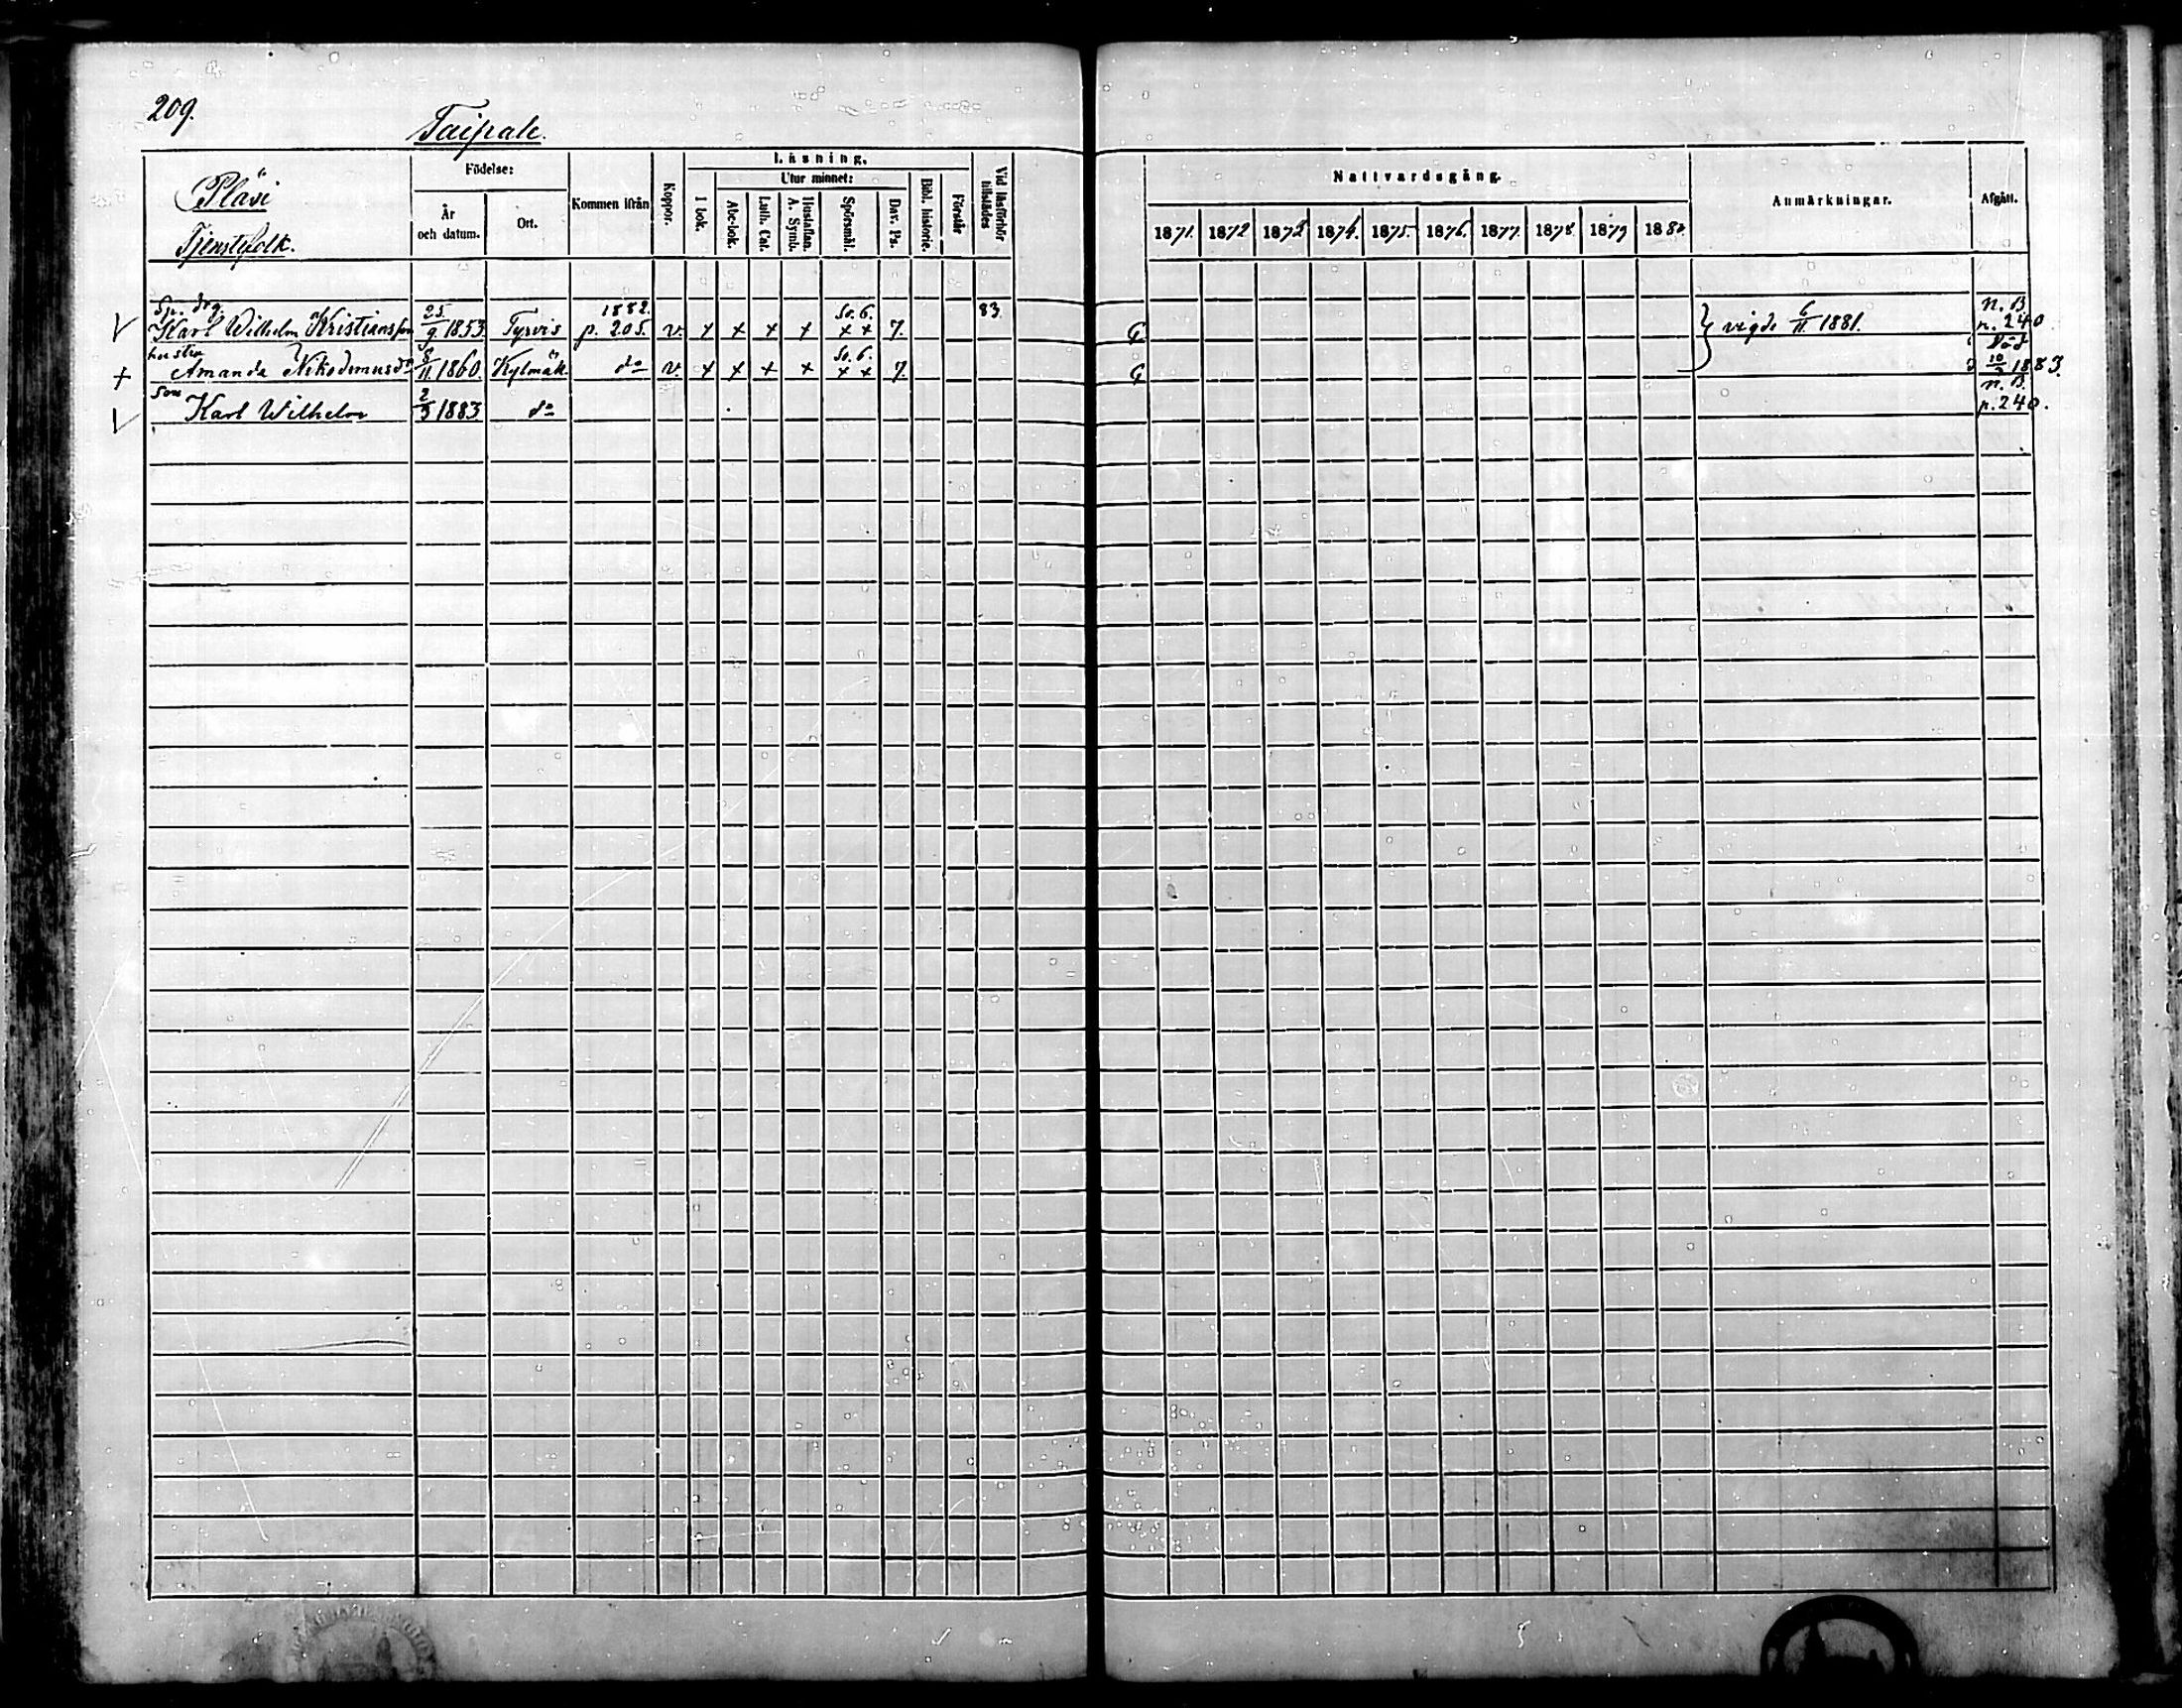 209.
Taipale.
Pläsi
Tjenstefolk.
Födelse:
År och datum.
Ort.
Kommen ifrån
Koppor.
Läsning.
I bok.
Utur minnet:
Abc-bok.
Luth. Cat.
Hustaflan. A. Symb.
Spörsmål.
Dav. Ps.
Bibl. historie.
Förstår
Vid läsförhör tillstädes
Nattvardsgång.
1871. 1872 1873 1874. 1875 1876. 1877. 1878 1879 188
Anmärkningar.
Afgått.
drg
Karl Wilhelm Kristiansson 25/9 1853 Tyrvis 1882. p. 205. v. + + + + So. 6. + + 7. 83. vigde 6/11 1881. n. B. p. 240
hustru
Amanda Nikodemusdr 8/11 1860. Kylmäk. do v. + + + + So. 6. + + 7. Död 1883.
Son
Karl Wilhelm 2/3 1883 do n. B. p. 240.